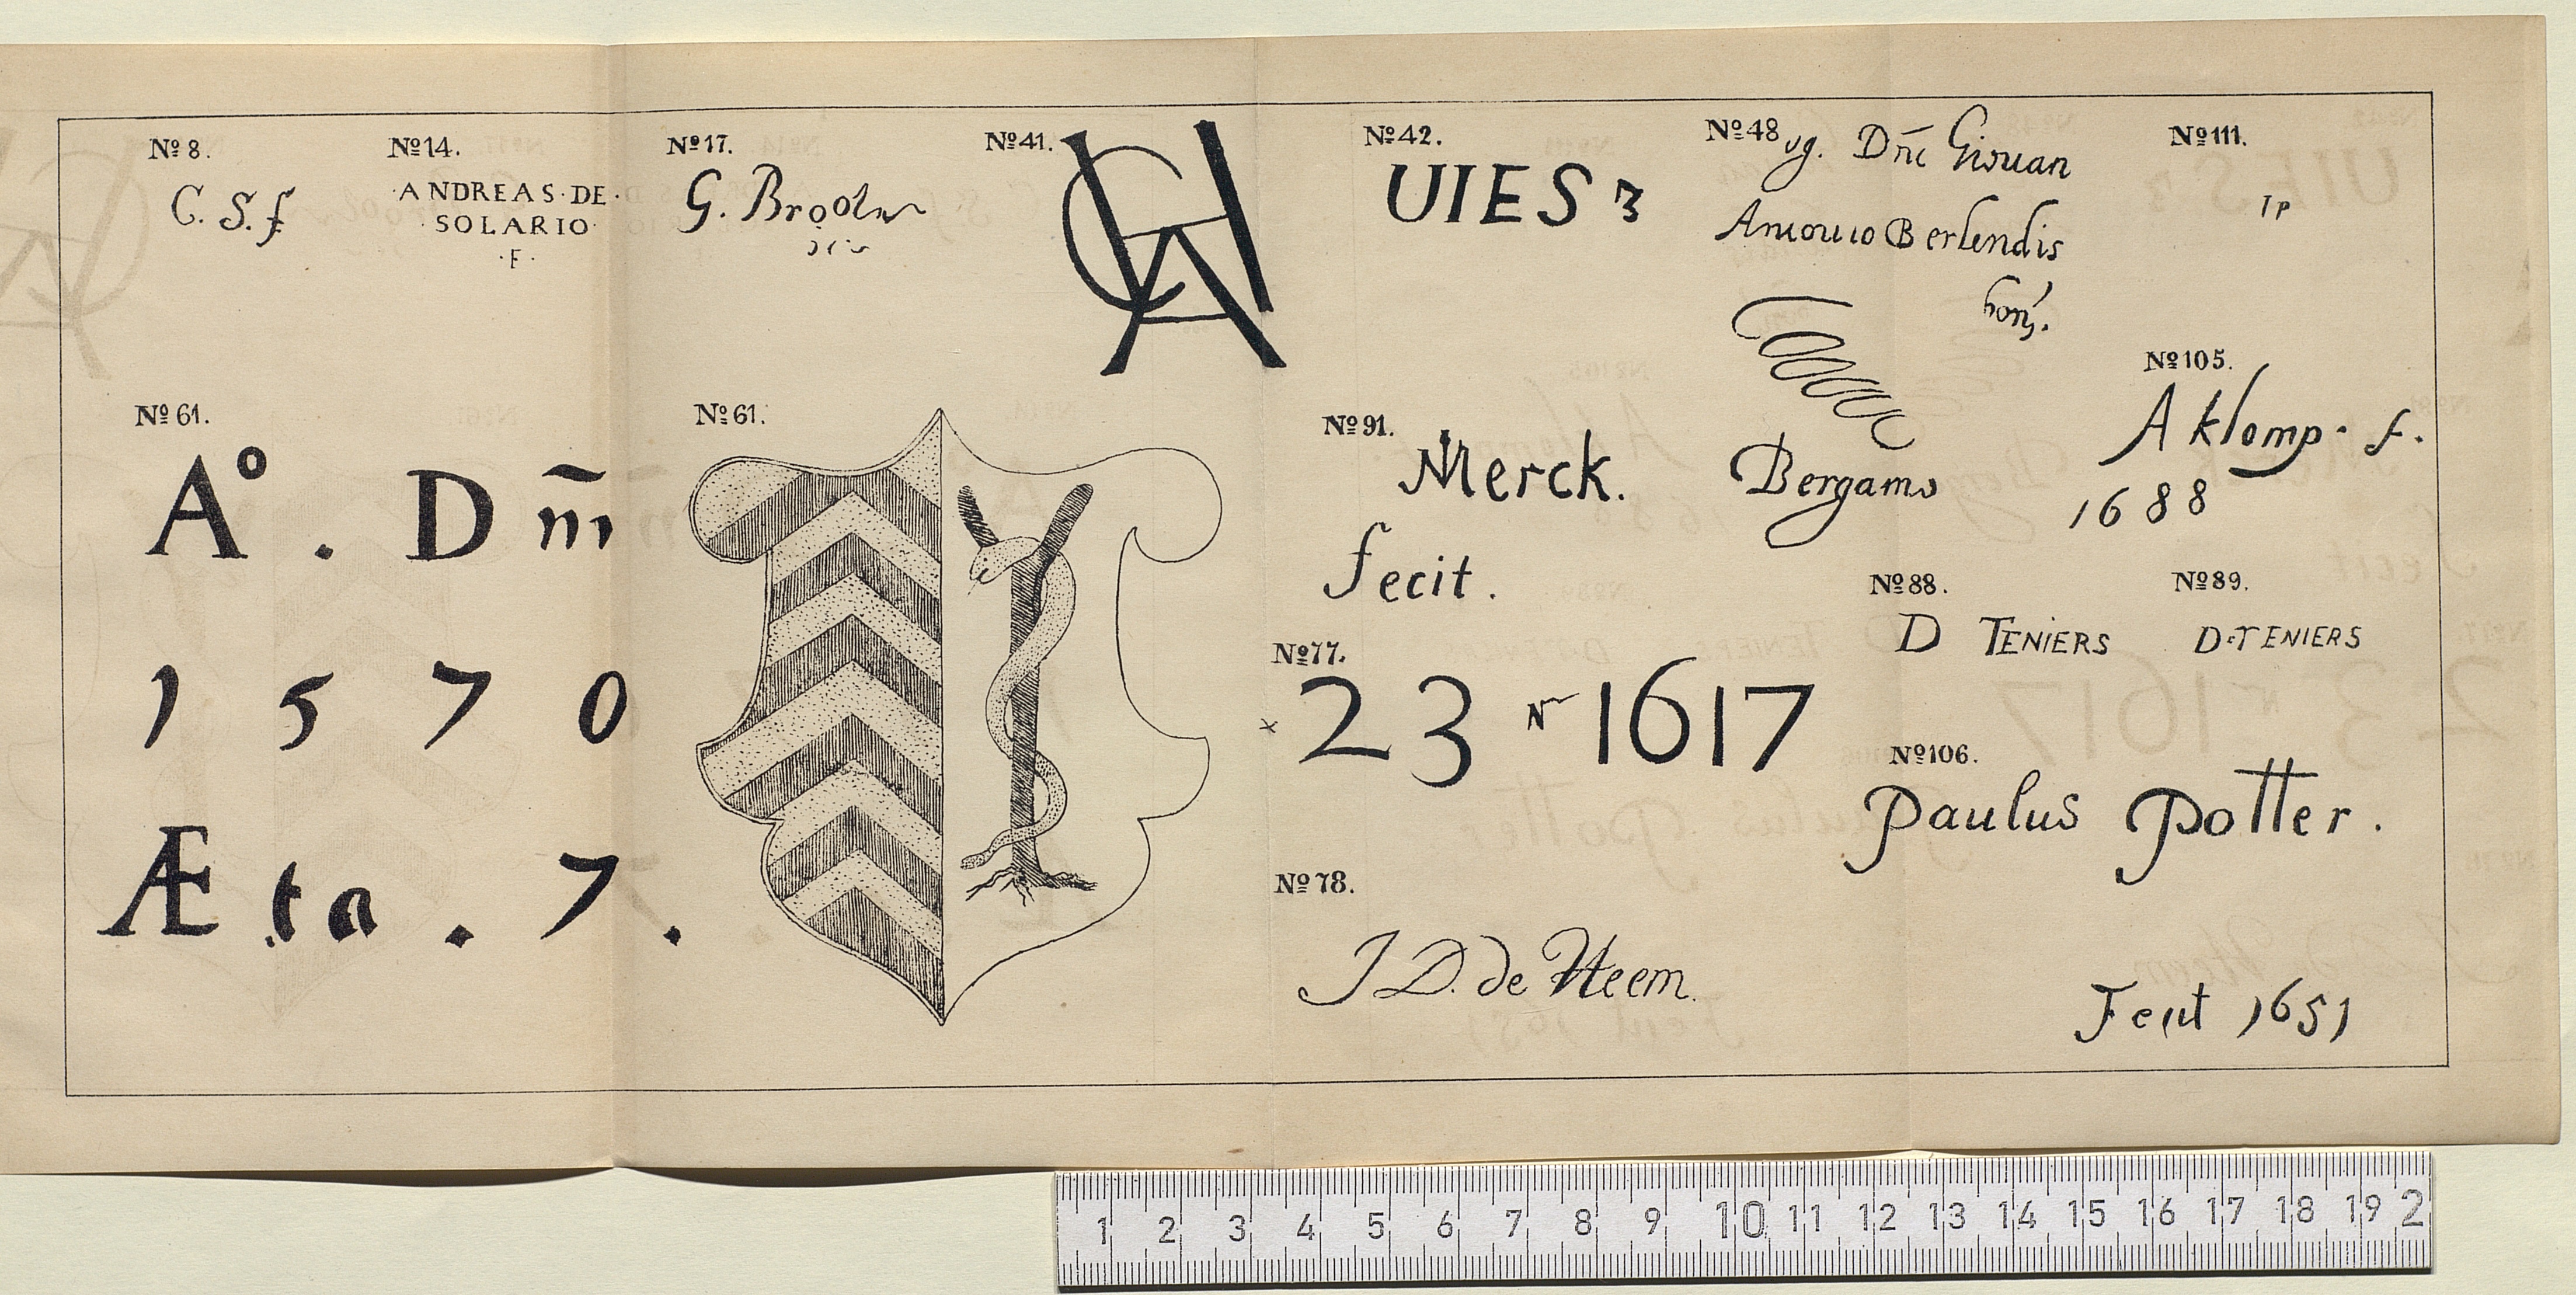 Nº 8.
C. S. f
Nº 14.
·ANDREAS·DE·
·SOLARIO·
·F·
Nº 17.
G.
Nº 41.
Nº 42.
UIES 3
Nº 48
sg. Dñi Giouan
Antonio Berlendis
Bergamo
Nº 111.
IP
Nº 61.
Aº. Dm̃
1570
Æta. 7.
Nº 61.
Nº 91.
Merck.
fecit.
Nº 105.
A klomp. f.
1688
Nº 88.
D TENIERS
Nº 89.
D·TENIERS
Nº 77.
23 N 1617
Nº 106.
Paulus Potter.
Fecit 1651
Nº 78.
J D. de Heem.
1 2 3 4 5 6 7 8 9 10 11 12 13 14 15 16 17 18 19 2